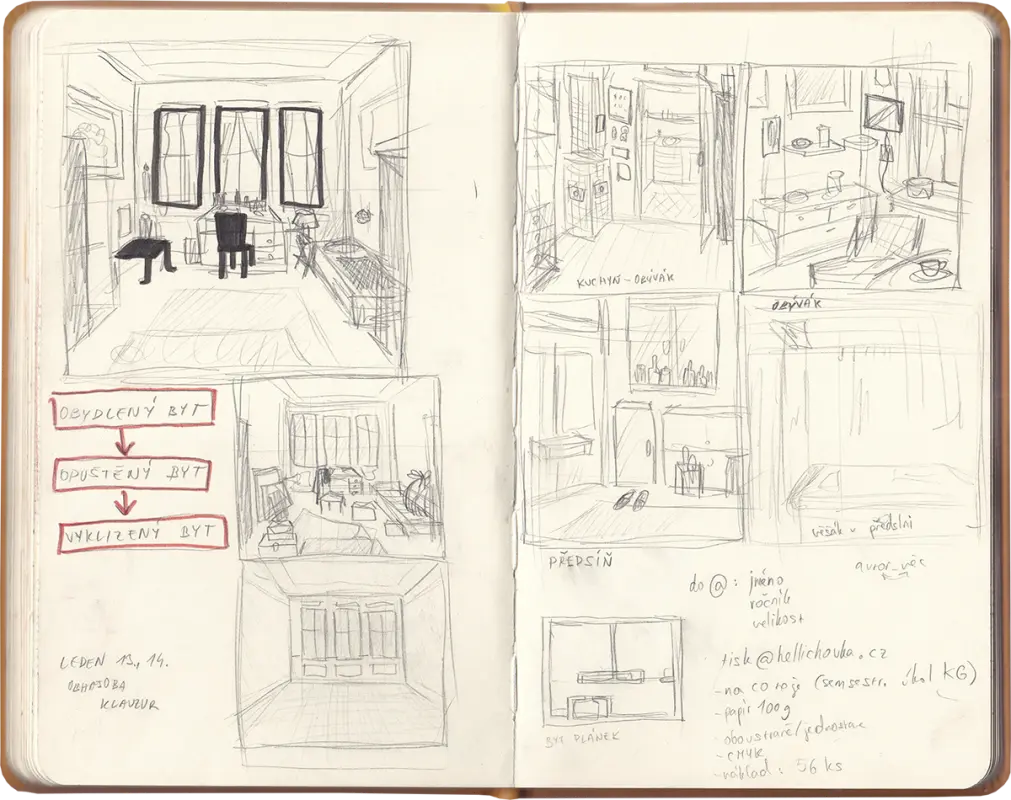 OBYDLENÝ BYT
OPUŠTĚNÝ BYT
VYKLIZENÝ BYT
LEDEN 13., 14.
OBHAJOBA
KLAUZUR
KUCHYŇ - OBÝVÁK
OBÝVÁK
věšák v předsíni
PŘEDSÍŇ
do @: jméno
ročník
velikost
tisk@hellichovka.cz
- na co to je (semsestr. úkol KG)
- papír 100g
- oboustrané/jednostrané
- CMYK
- náklad: 56 ks
BYT PLÁNEK